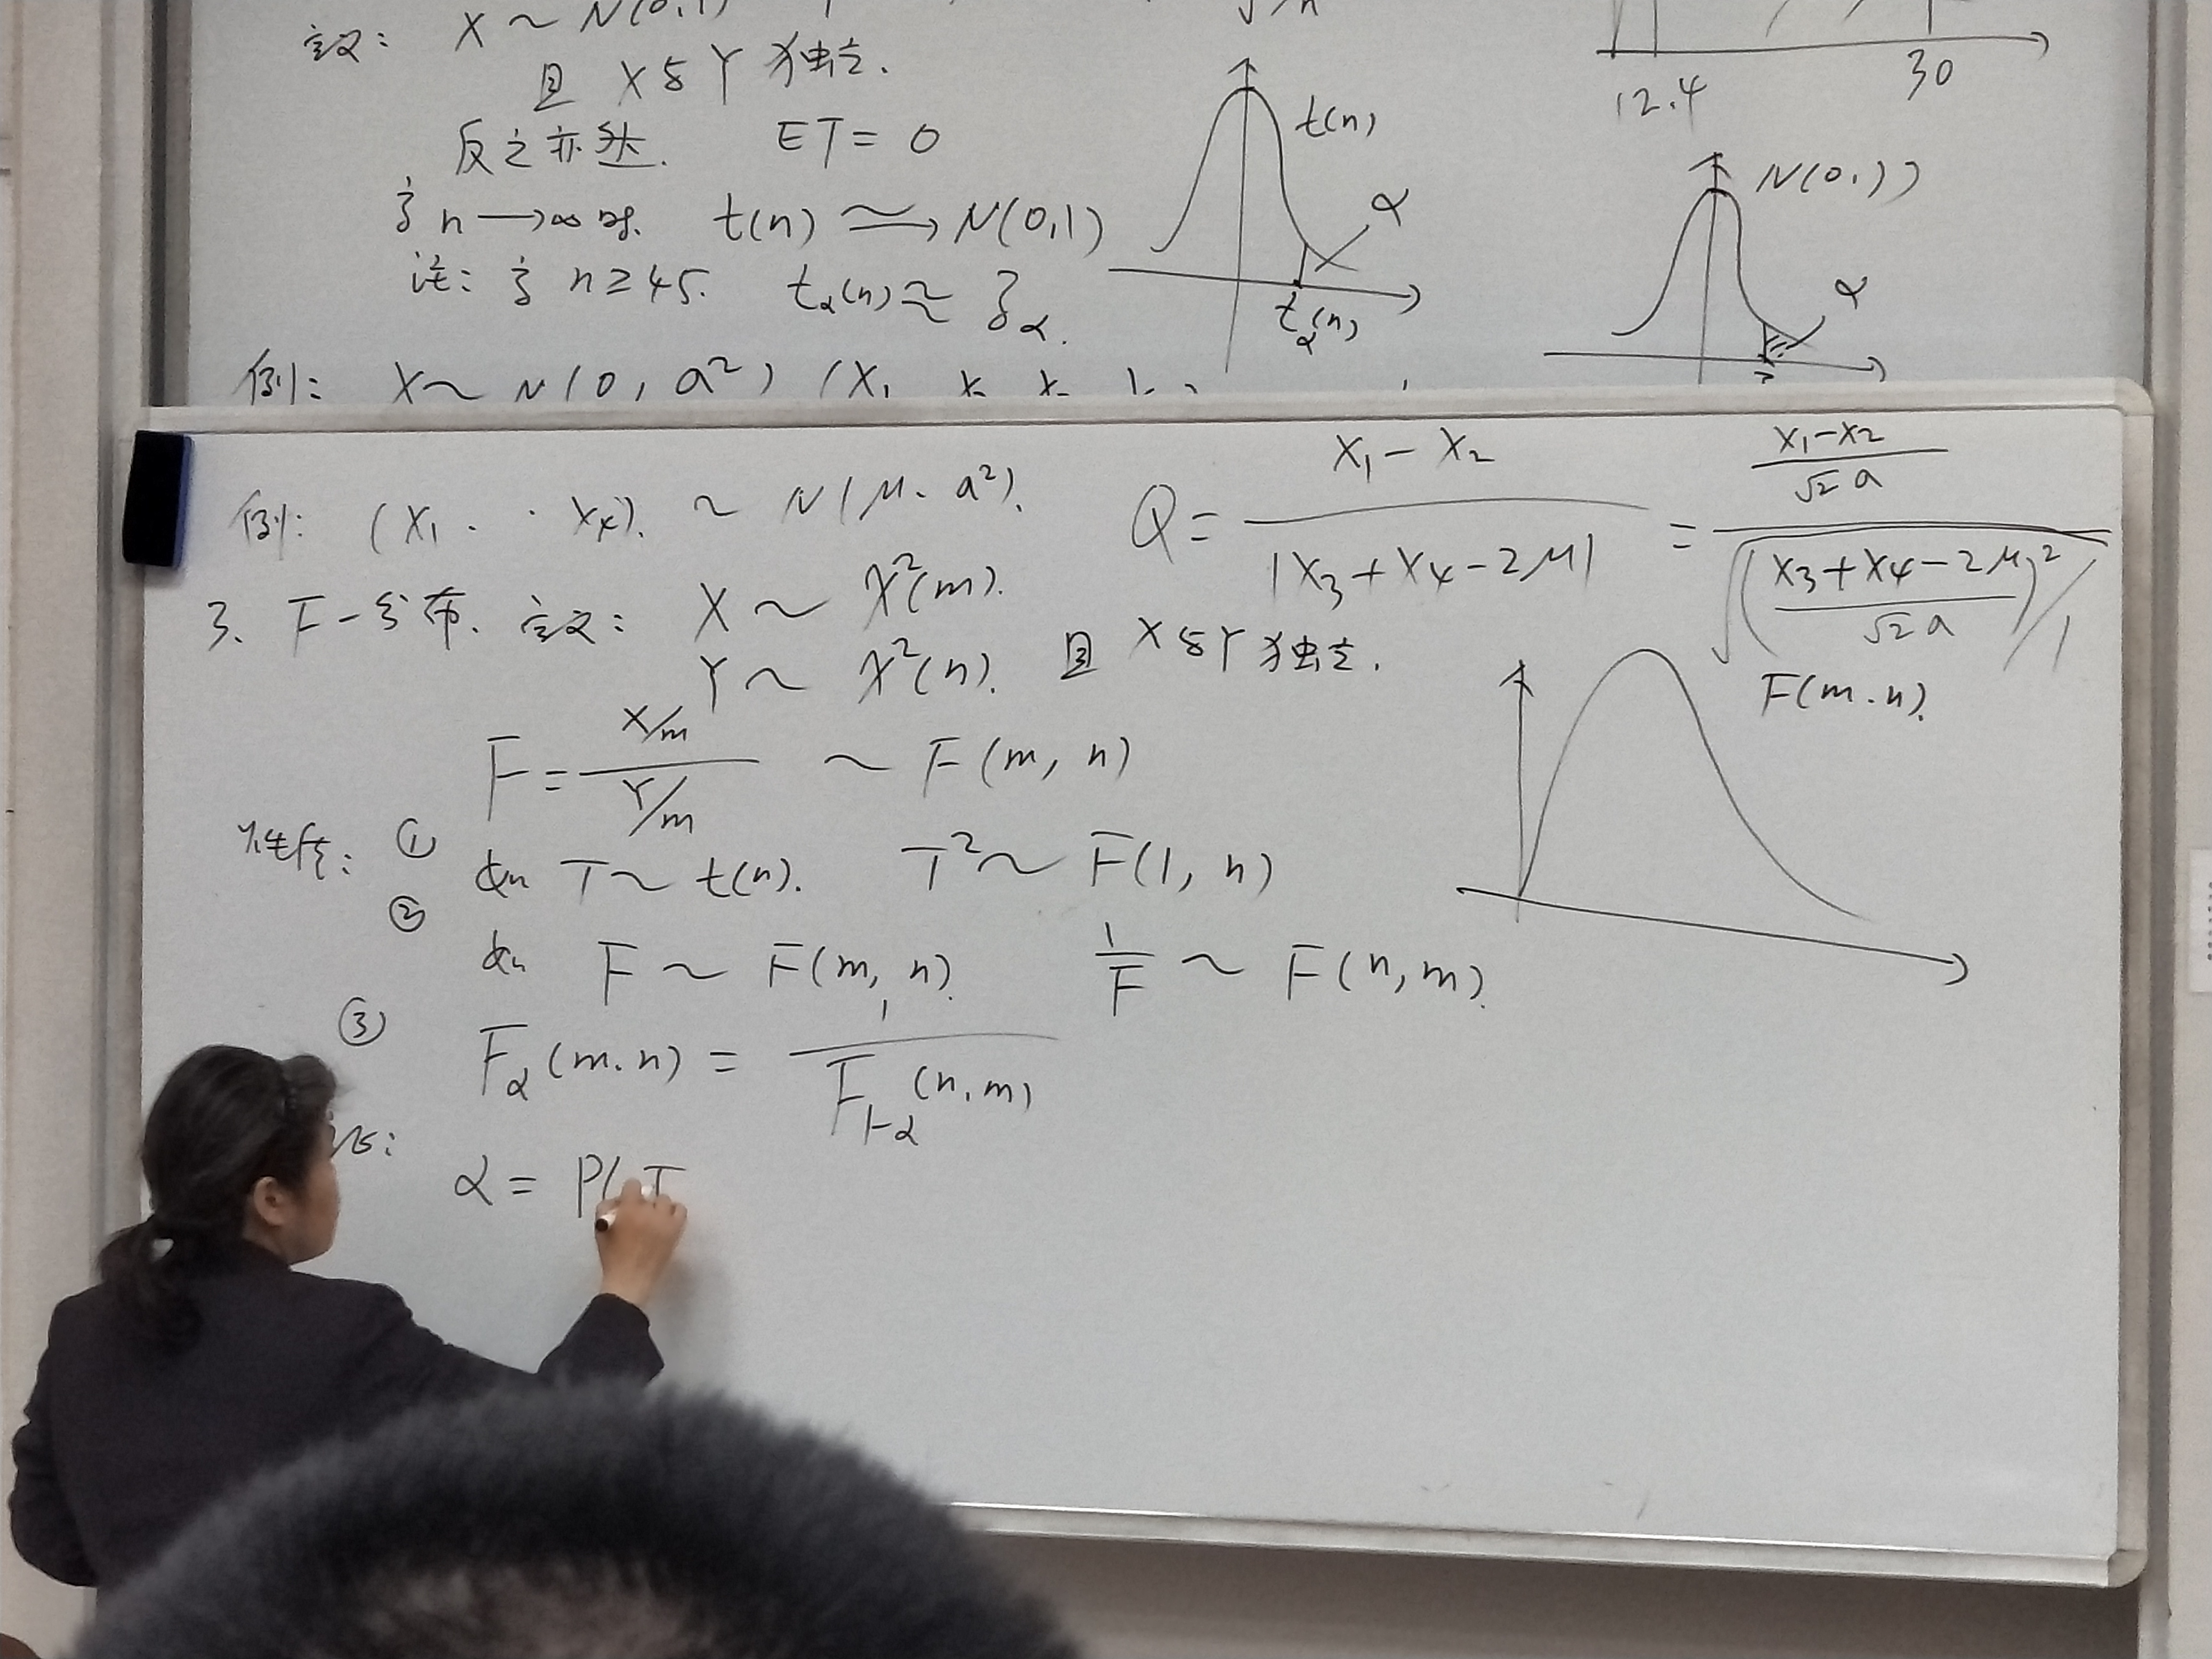 定义: X ~ N(0,1)
且 X与Y 独立.
反之亦然. ET = 0
当 n ⟶ ∞ 时. t(n) ≃⟶ N(0,1)
注: 当 n ≥ 45. t_α(n) ≈ z_α.
例: X ~ N(0, a²) (X₁
t(n)
α
t_α(n)
12.4
30
N(0,1)
α
例: (X₁ . . X₄). ~ N(μ. a²). Q = (X₁ - X₂) / |X₃ + X₄ - 2μ| = ((X₁ - X₂) / (√2 a)) / √(((X₃ + X₄ - 2μ) / (√2 a))² / 1)
3. F-分布. 定义: X ~ χ²(m).
Y ~ χ²(n). 且 X与Y 独立.
F = (X/m) / (Y/m) ~ F(m, n)
性质: ① 如 T ~ t(n). T² ~ F(1, n)
② 如 F ~ F(m, n). 1/F ~ F(n, m).
③ F_α(m.n) = 1 / F_{1-α}(n.m)
证:
α = P(
F(m.n).